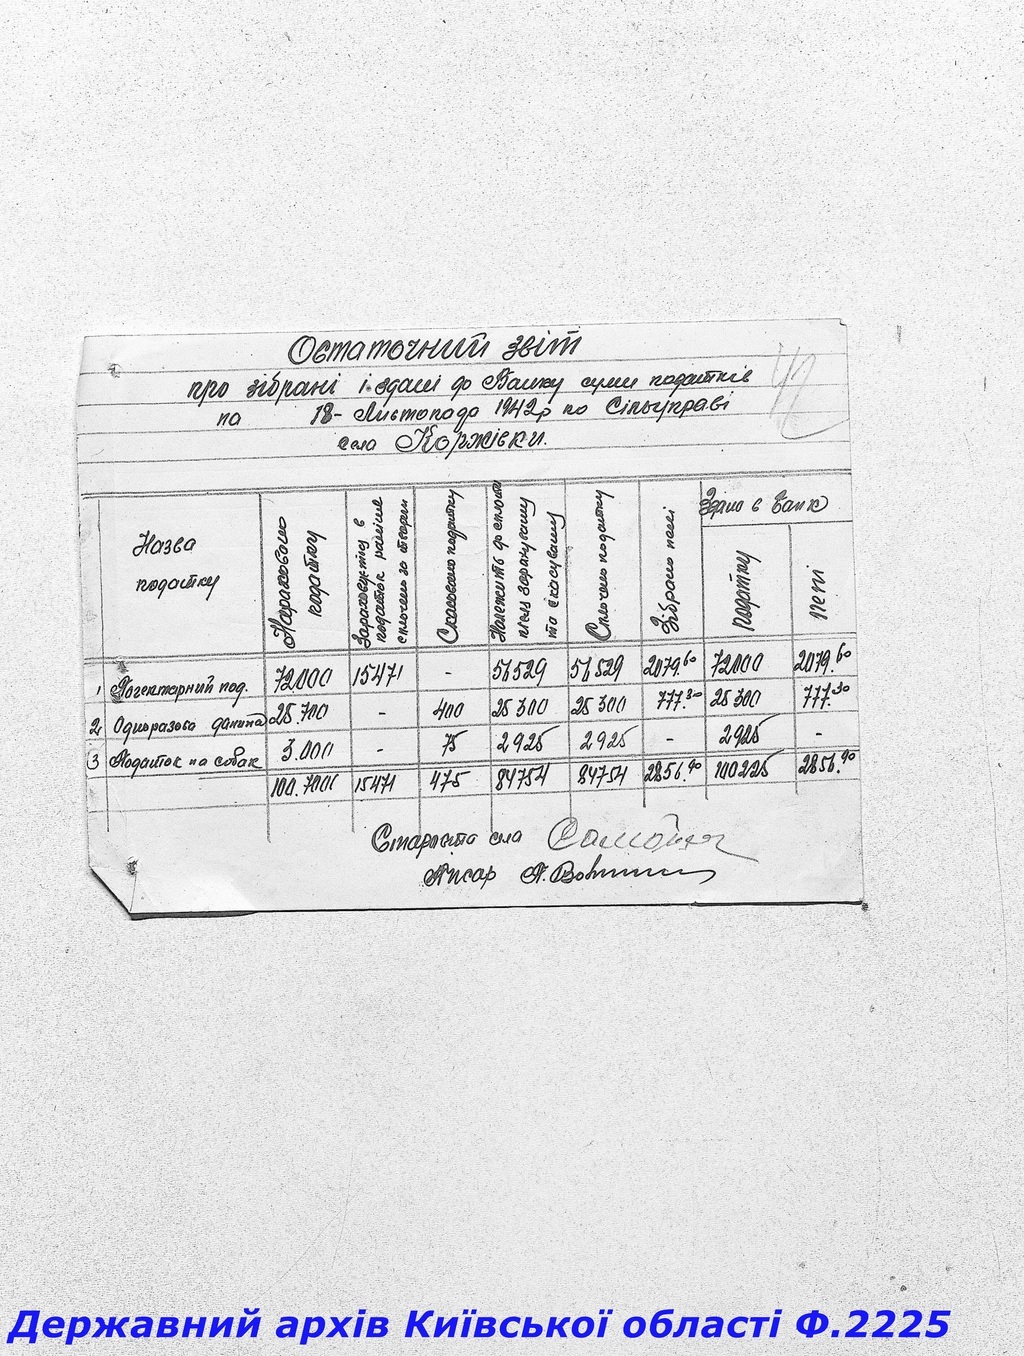 Остаточний звіт
про зібрані і здані до Банку суми податків
на 18- Листопада 1942р по Сільуправі
села Коржівки.
42
Назва податку
Нараховано податку
Зараховується в податок раніше сплочено за
Скасовано податку
Належить до сплати після зарахуванню та скасуванню
Сплочено податку
Зібрано пені
Здано в Банк
податку
пені
1 Погектарний под. 72000 15471 - 56529 56529 2079.60 72000 2079.60
2 Одноразова данина 25.700 - 400 25300 25300 777.30 25300 777.30
3 Податок на собак 3.000 - 75 2925 2925 - 2925 -
100.700 15471 475 84754 84754 2856.90 100225 2856.90
Староста села
Писар
Державний архів Київської області Ф.2225